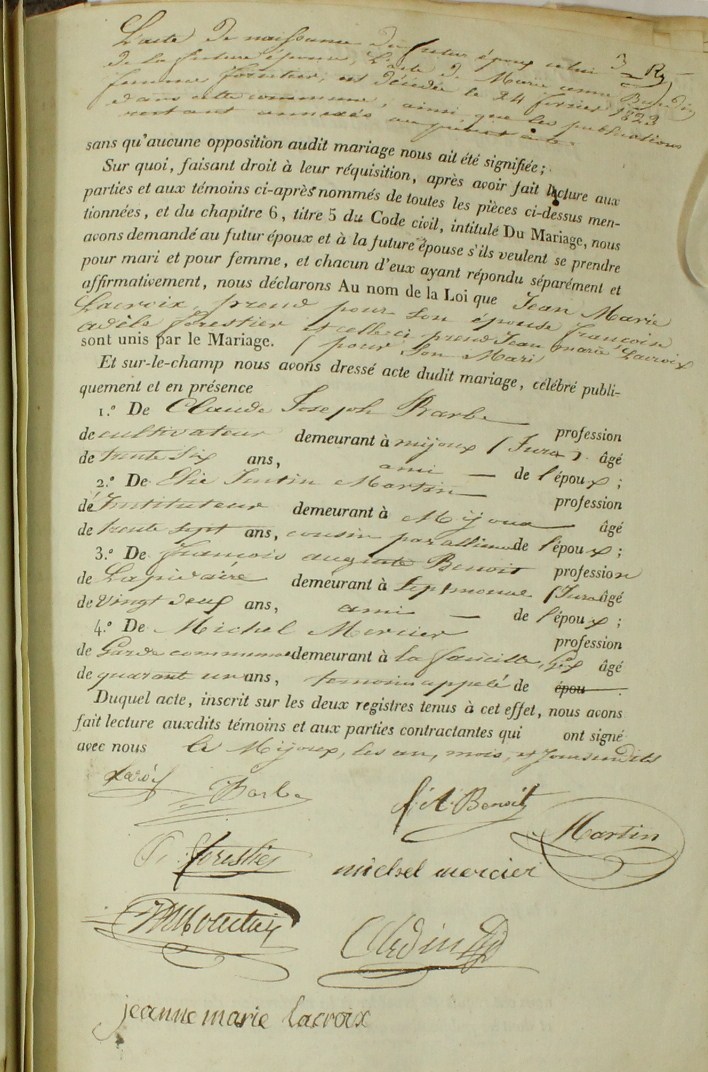 L'acte de naissance du futur époux celui
de la future épouse, l'acte de Marie
femme forestier, est décédée le 24 février 1823
dans cette commune, ainsi que les publications
restant annexés au présent acte
sans qu'aucune opposition audit mariage nous ait été signifiée ;
Sur quoi, faisant droit à leur réquisition, après avoir fait lecture aux
parties et aux témoins ci-après nommés de toutes les pièces ci-dessus men-
tionnées, et du chapitre 6, titre 5 du Code civil, intitulé Du Mariage, nous
avons demandé au futur époux et à la future épouse s'ils veulent se prendre
pour mari et pour femme, et chacun d'eux ayant répondu séparément et
affirmativement, nous déclarons Au nom de la Loi que Jean Marie
Lacroix, prend pour son épouse françoise
adèle forestier et celle ci prend Jean marie Lacroix
sont unis par le Mariage. pour son Mari
Et sur-le-champ nous avons dressé acte dudit mariage, célébré publi-
quement et en présence
1.º De Claude Joseph Barbe profession
de cultivateur demeurant à mijoux (Jura) âgé
de trente six ans, ami de l'époux ;
2.º De Elie Justin Martin profession
de Instituteur demeurant à Mijoux âgé
de trente sept ans, cousin par alliance de l'époux ;
3.º De françois auguste Benoit profession
de Lapidaire demeurant à Septmoncel (Jura) âgé
de vingt deux ans, ami de l'époux ;
4.º De Michel Mercier profession
de Garde commune demeurant à la faucille, Gex âgé
de quarant un ans, temoin appelé de épou
Duquel acte, inscrit sur les deux registres tenus à cet effet, nous avons
fait lecture auxdits témoins et aux parties contractantes qui ont signé
avec nous le Mijoux, les an, mois, et jour susdits
Barbe
f. A. Benoit
Martin
forestier
michel mercier
jeanne marie lacroix